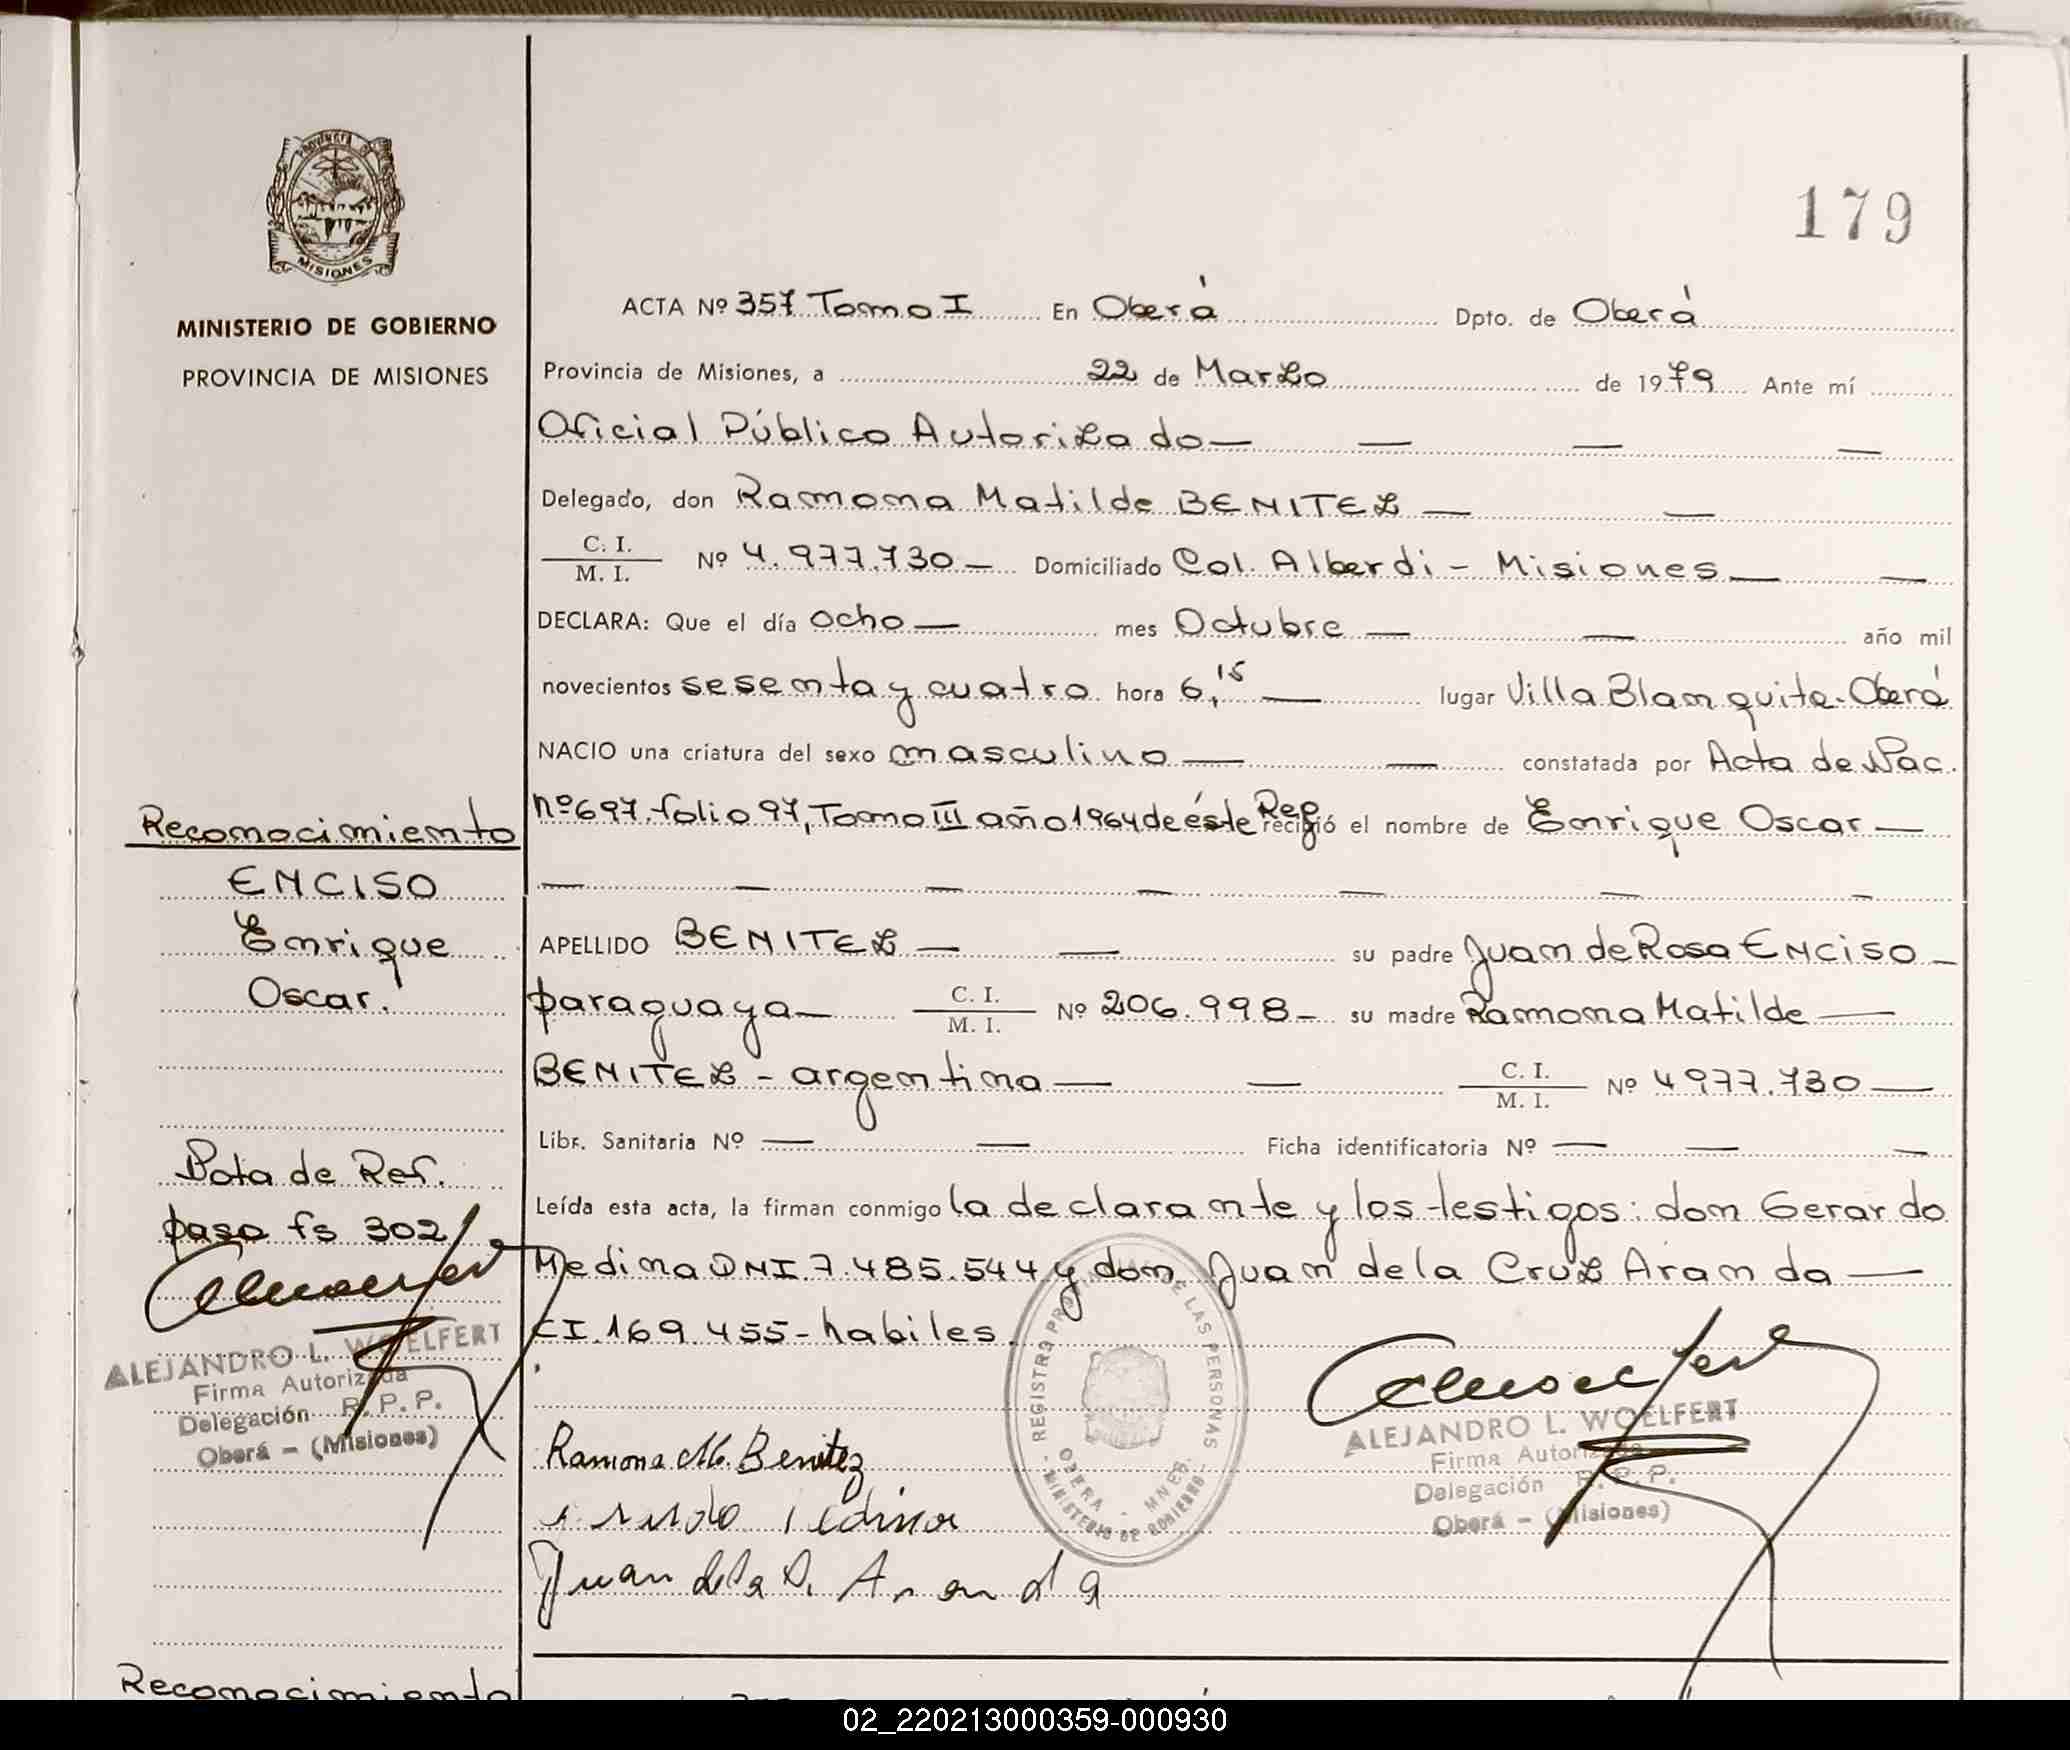 179
PROVINCIA DE
MISIONES
MINISTERIO DE GOBIERNO
PROVINCIA DE MISIONES
ACTA Nº 357 Tomo I En Oberá Dpto. de Oberá
Provincia de Misiones, a 22 de Marzo de 1979 Ante mí
Oficial Público Autorizado — — — —
Delegado, don Ramona Matilde BENITEZ — —
C. I.
M. I. Nº 4.977.730 — Domiciliado Col. Alberdi - Misiones — —
DECLARA: Que el día ocho — mes Octubre — — año mil
novecientos sesenta y cuatro hora 6,15 — lugar Villa Blanquita-Oberá
NACIO una criatura del sexo masculino — — constatada por Acta de Nac.
nº 697. folio 97, Tomo III año 1964 de éste Reg recibió el nombre de Enrique Oscar —
— — — — — — —
APELLIDO BENITEZ — — su padre Juan de Rosa ENCISO —
paraguaya — C. I.
M. I. Nº 206.998 — su madre Ramona Matilde —
BENITEZ - argentina — — C. I.
M. I. Nº 4977.730 —
Libr. Sanitaria Nº — — Ficha identificatoria Nº — — —
Leída esta acta, la firman conmigo la declarante y los testigos: don Gerardo
Medina DNI. 7.485.544 y don Juan de la Cruz Aranda —
CI. 169.455 - habiles.
Ramona M. Benitez
Juan de la C. Aranda
REGISTRO PROVINCIAL DE LAS PERSONAS
OBERA - MNES.
MINISTERIO DE GOBIERNO
ALEJANDRO L. WOELFERT
Firma Autorizada
Delegación R. P. P.
Oberá - (Misiones)
Reconocimiento
ENCISO
Enrique
Oscar.
Nota de Ref.
paso fs 302
ALEJANDRO L. WOELFERT
Firma Autorizada
Delegación R. P. P.
Oberá - (Misiones)
Reconocimiento
02_220213000359-000930